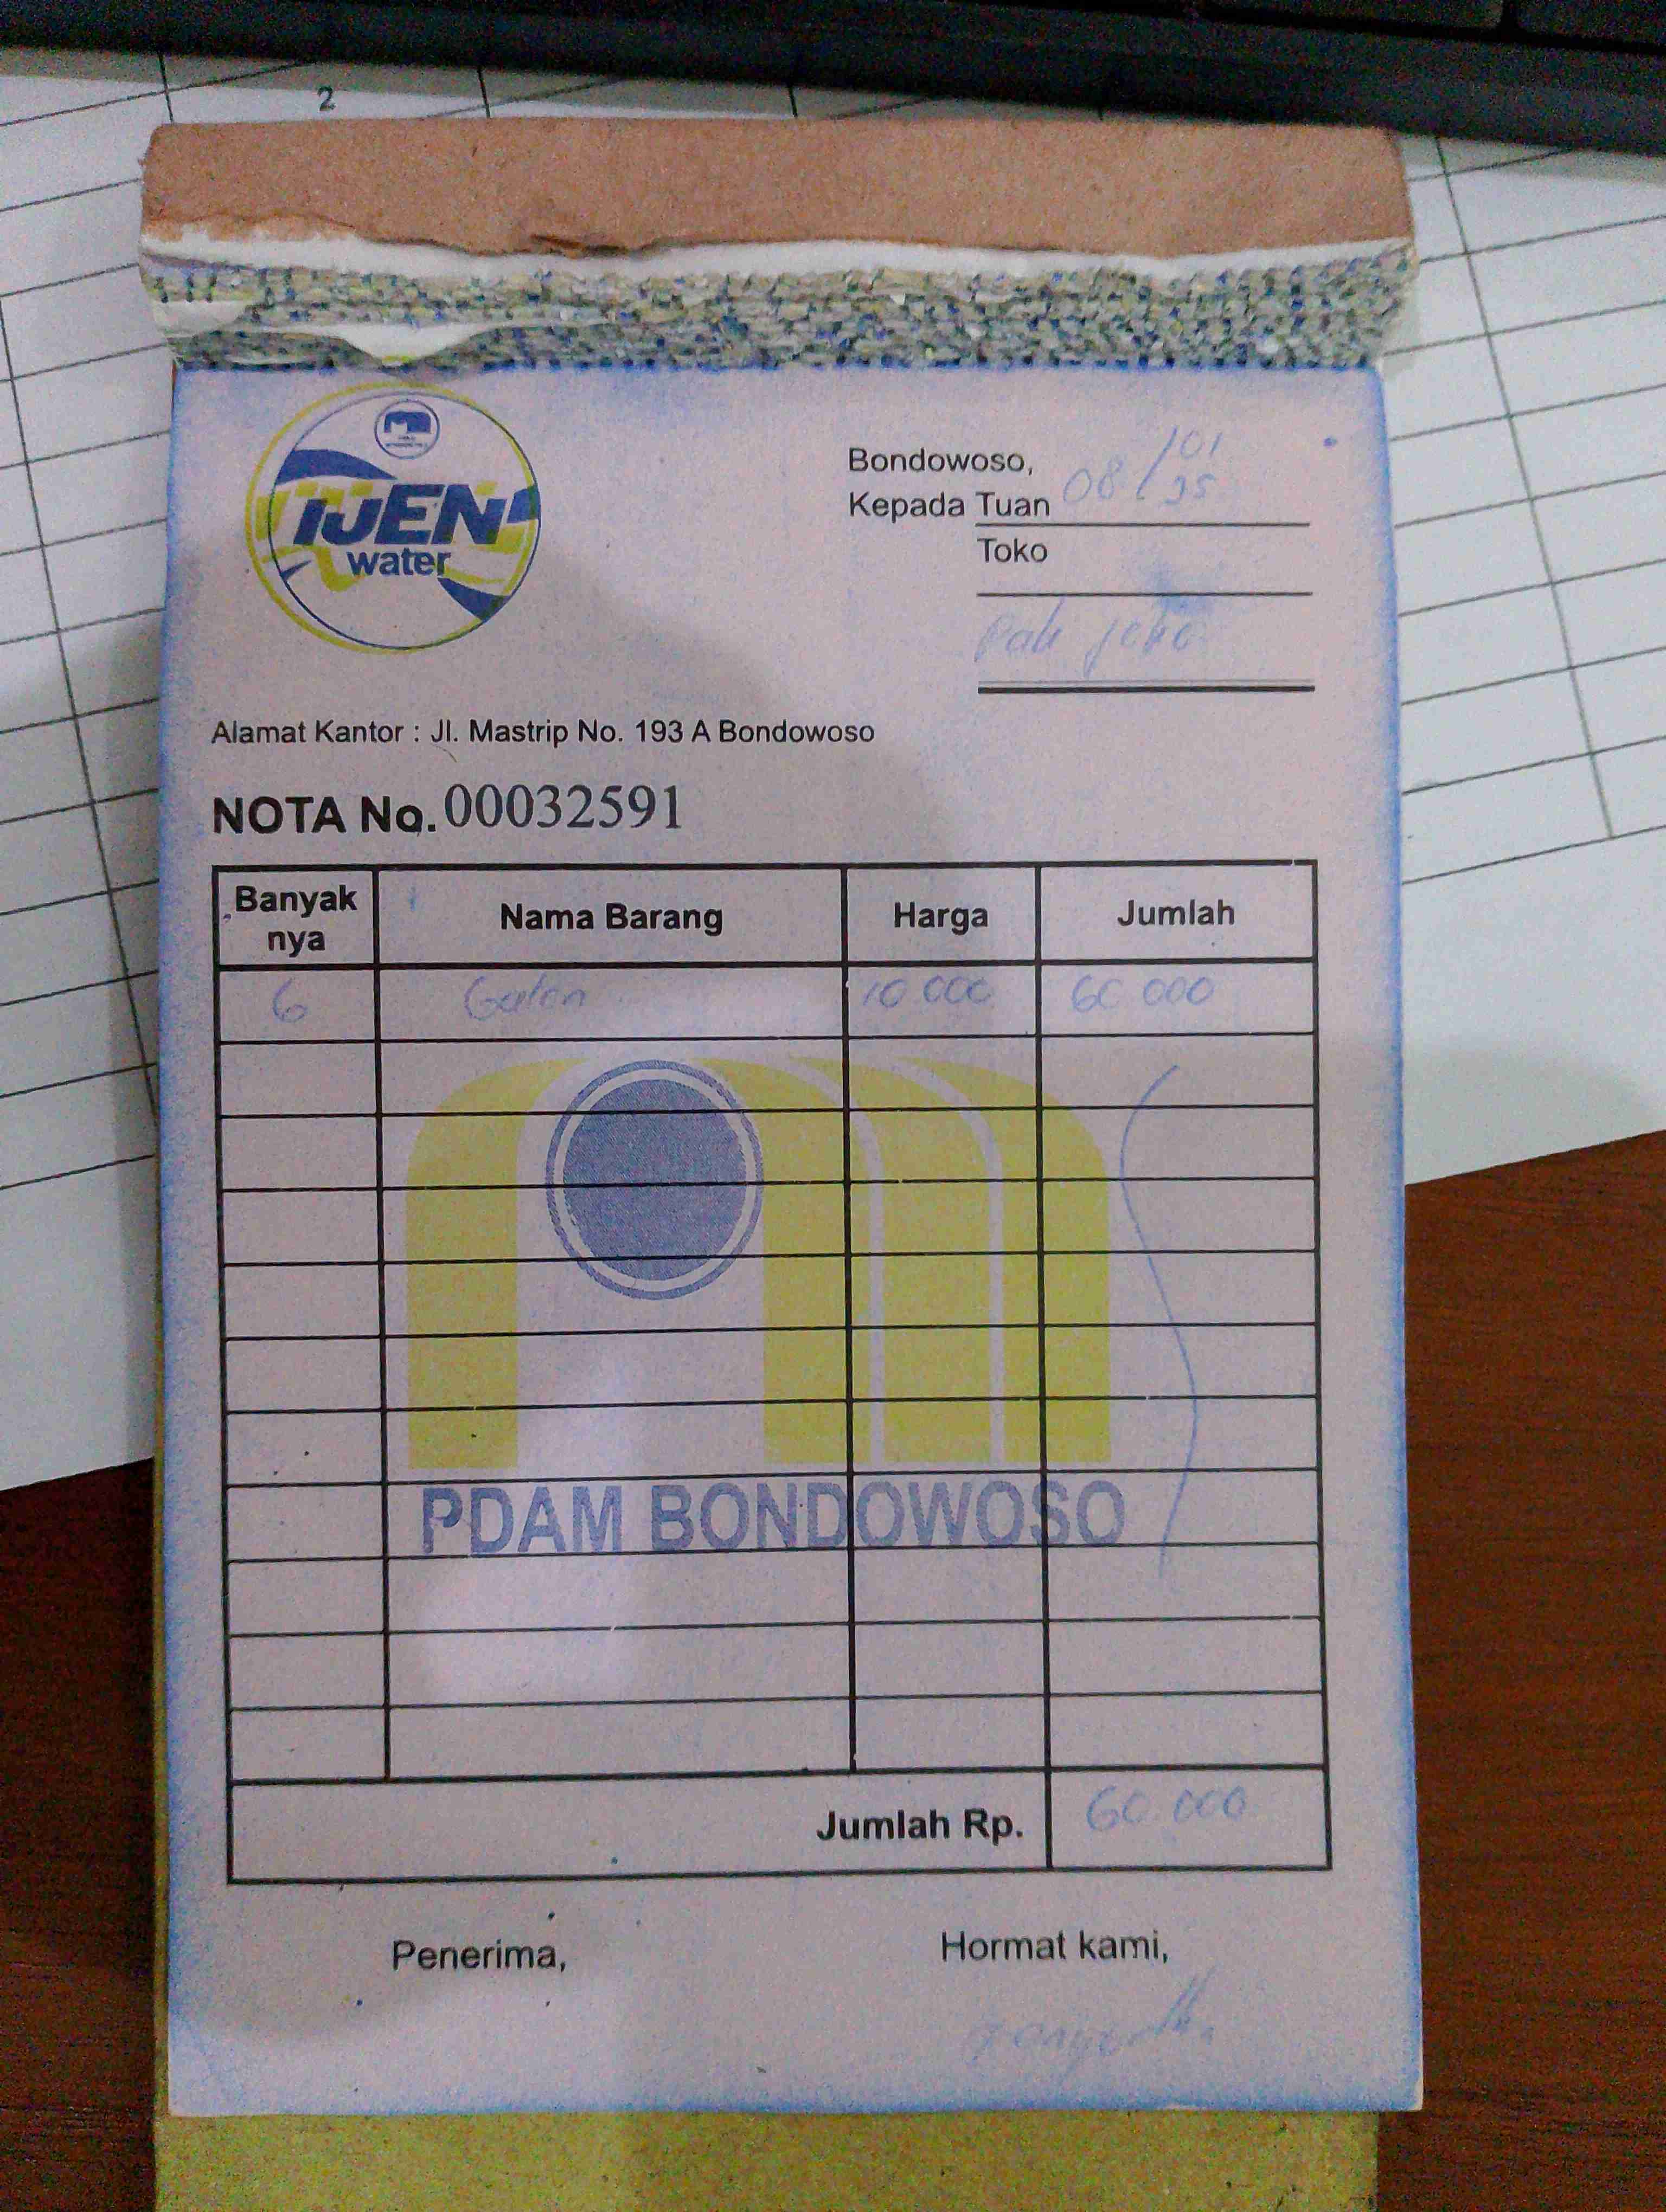 2
IJEN
water
Bondowoso, 08/01
Kepada Tuan
Toko
Pak Joko
Alamat Kantor : Jl. Mastrip No. 193 A Bondowoso
NOTA No. 00032591
Banyak nya Nama Barang Harga Jumlah
6 Galon 10.000 60 000
PDAM BONDOWOSO
Jumlah Rp. 60.000
Penerima, Hormat kami,